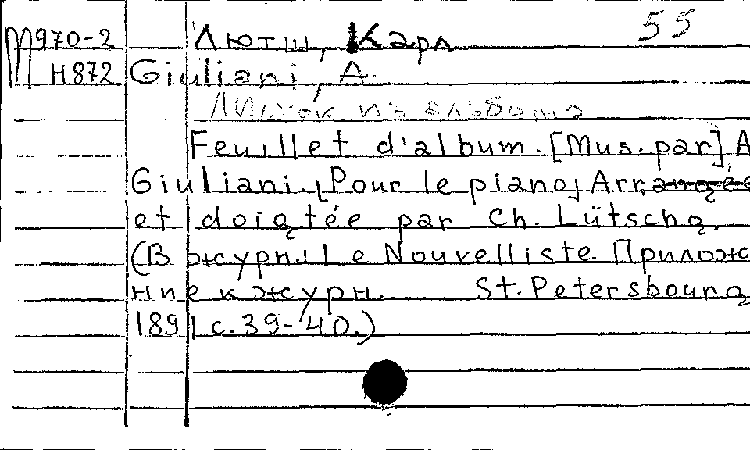 М970-2 Лютш, Карл 55
Н872 Giuliani, A.
Листок из альбома
Feuillet d'album. [Mus. par] A
Giuliani. [Pour le piano] Arrangée
et doigtée par Ch. Lütschg.
(В журн. Le Nouvelliste. Прилож
ние к журн. St. Petersbourg
1891 с. 39-40.)